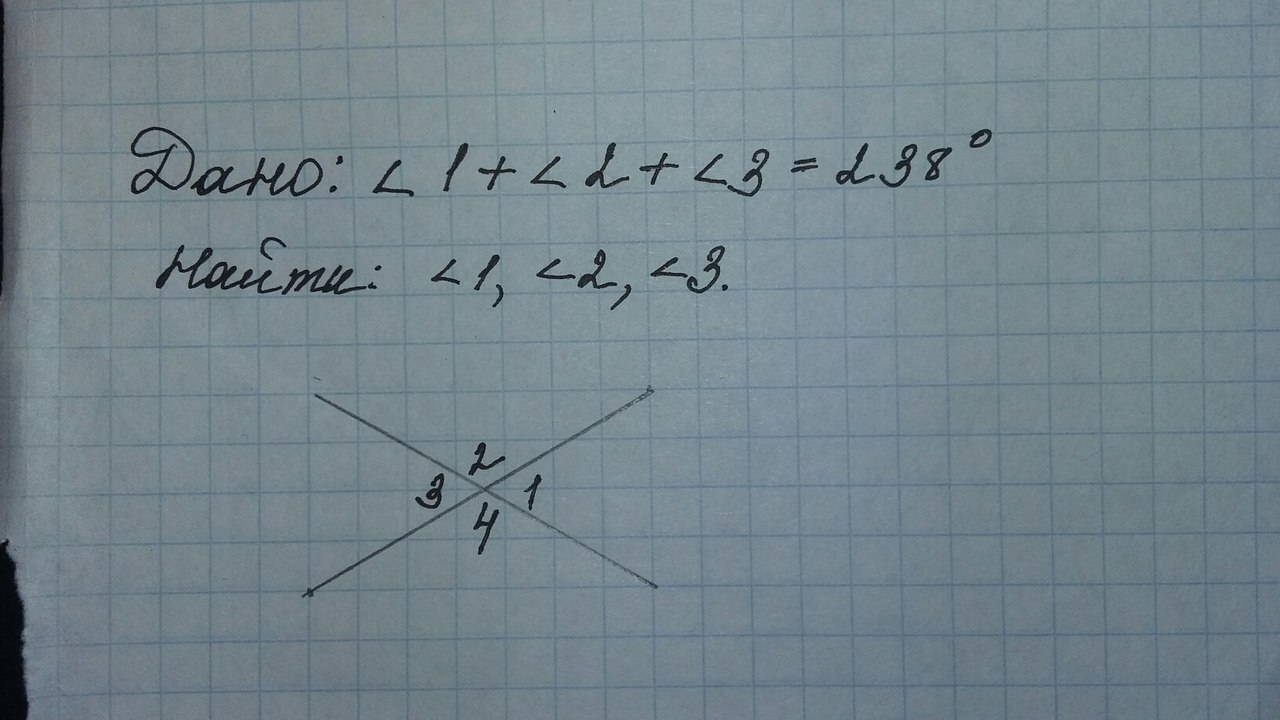 Дано: ∠1+∠2+∠3=238°
Найти: ∠1, ∠2, ∠3.
2
3 1
4